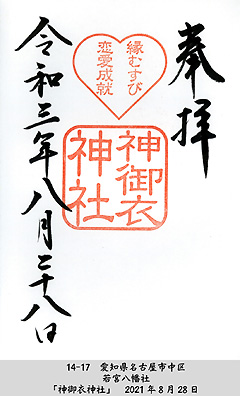 奉拝
縁むすび
恋愛成就
神御衣
神社
令和三年八月二十八日
14-17　愛知県名古屋市中区
若宮八幡社
「神御衣神社」　2021年8月28日